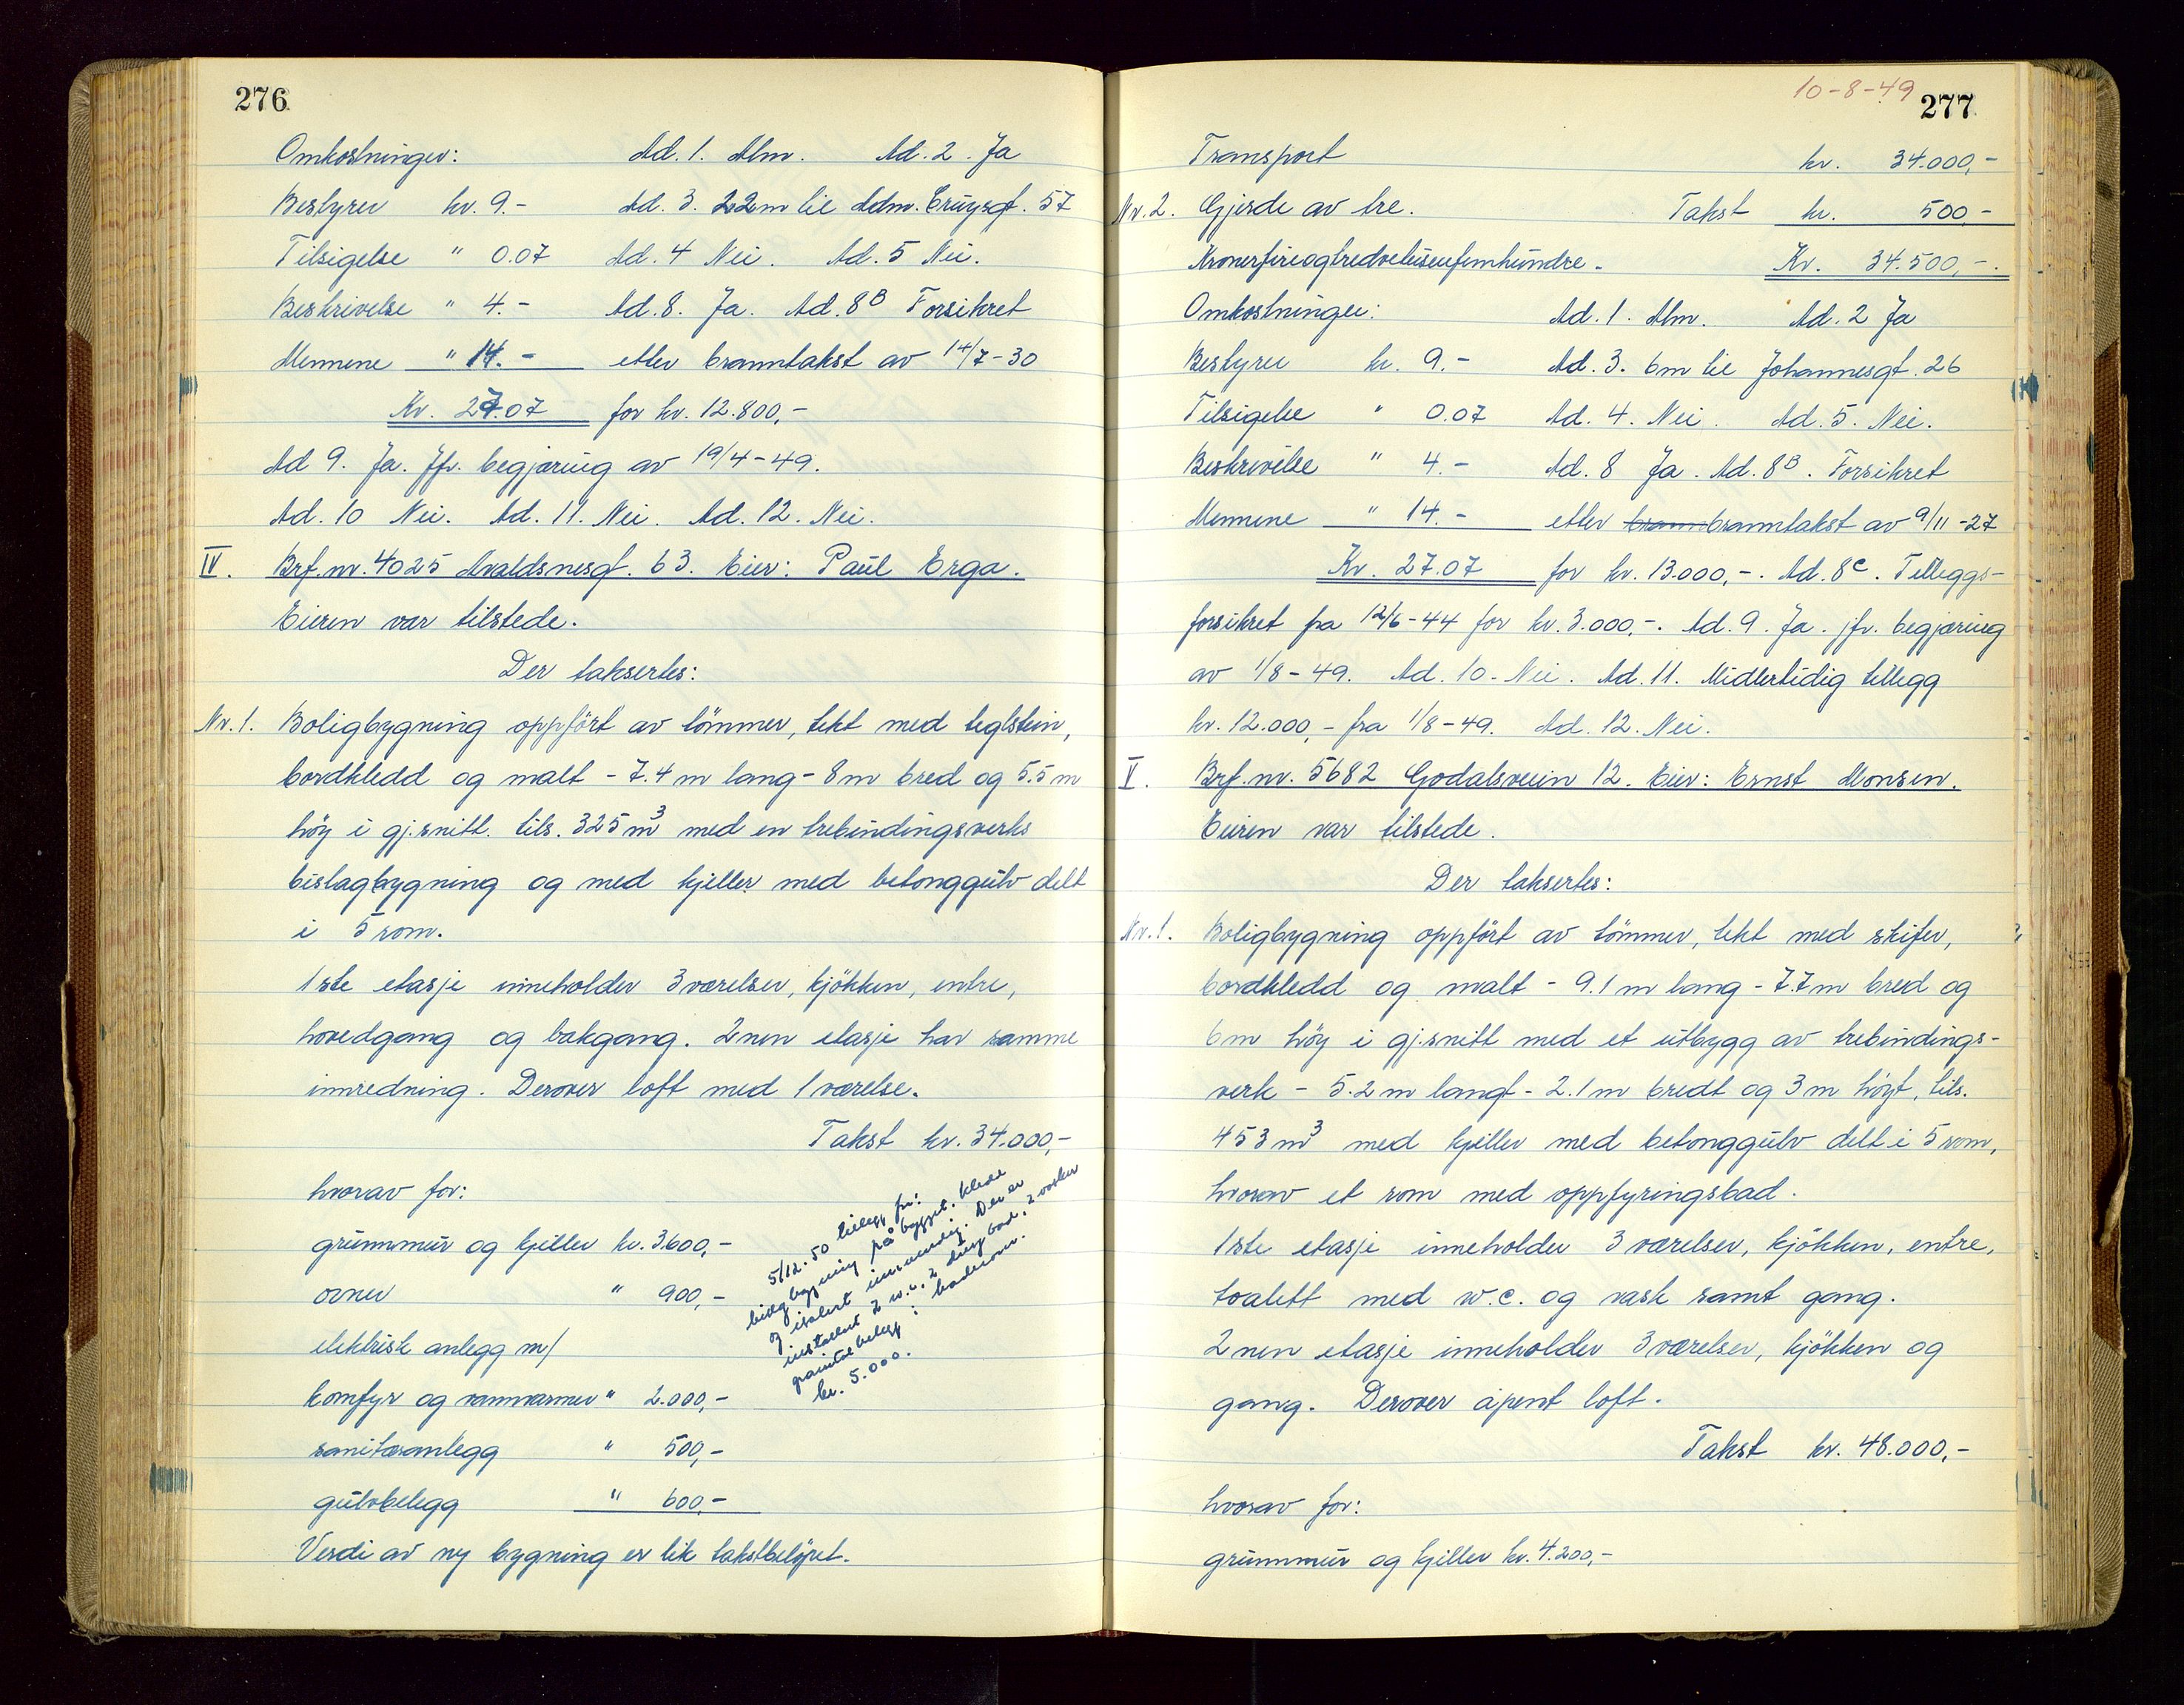 276
Omkostninger: Ad. 1. Alm. Ad. 2. Ja
Bestyrer kr. 9.- Ad. 3. 22m til Adm. Cruysgt. 57
Tilsigelse " 0.07 Ad. 4 Nei. Ad. 5 Nei.
Beskrivelse " 4.- Ad. 8. Ja. Ad. 8B Forsikret
Mennene " 14.- etter branntakst av 14/7-30
Kr. 27.07 for kr. 12.800,-
Ad 9. Ja. Jfr. begjæring av 19/4-49.
Ad. 10 Nei. Ad. 11. Nei. Ad. 12. Nei.
IV. Brf. nr. 4025 Avaldsnesgt. 63. Eier: Paul Erga.
Eieren var tilstede.
Der taksertes:
Nr. 1. Boligbygning oppført av tömmer, tekt med teglstein,
bordkledd og malt - 7.4 m lang - 8 m bred og 5.5 m
höy i gj.snitt. tils. 325 m³ med en trebindingsverks
bislagbygning og med kjeller med betonggulv delt
i 5 rom.
1ste etasje inneholder 3 værelser, kjökken, entre,
hovedgang og bakgang. 2nen etasje har samme
innredning. Derover loft med 1 værelse.
Takst kr. 34.000,-
hvorav for:
grunnmur og kjeller kr. 3.600,-
ovner " 900,-
elektrisk anlegg m/
komfyr og vannvarmer " 2.000,-
sanitæranlegg " 500,-
gulvbelegg " 600,-
Verdi av ny bygning er lik takstbelöpet.
5/12.50 tillegg for:
bislagbygning påbygget, klede
og isolert innvendig. Der er
installert 2 w.c. 2 dusjbad, 2 vasker
granitolbelegg i baderom.
kr. 5.000.
10-8-49
277
Transport kr. 34.000,-
Nr. 2. Gjerde av tre. Takst kr. 500,-
Kronerfireogtredvetusenfemhundre. Kr. 34.500,-.
Omkostninger: Ad. 1. Alm. Ad. 2 Ja
Bestyrer kr. 9.- Ad. 3. 6m til Johannesgt. 26
Tilsigelse " 0.07 Ad. 4. Nei. Ad. 5. Nei.
Beskrivelse " 4.- Ad. 8 Ja. Ad. 8B. Forsikret
Mennene " 14.- etter brann branntakst av 9/11-27
Kr. 27.07 for kr. 13.000,-. Ad. 8C. Tilleggs-
forsikret fra 12/6-44 for kr. 3.000,-. Ad. 9. Ja. jfr. begjæring
av 1/8-49. Ad. 10. Nei. Ad. 11. Midlertidig tillegg
kr. 12.000,- fra 1/8-49. Ad. 12. Nei.
V. Brf. nr. 5682 Godalsveien 12. Eier: Ernst Monsen.
Eieren var tilstede.
Der taksertes:
Nr. 1. Boligbygning oppfört av tömmer, tekt med skifer,
bordkledd og malt - 9.1 m lang - 7.7 m bred og
6 m höy i gj.snitt med et utbygg av trebindings-
verk - 5.2 m langt - 2.1 m bredt og 3 m höyt, tils.
453 m³ med kjeller med betonggulv delt i 5 rom,
hvorav et rom med oppfyringsbad.
1ste etasje inneholder 3 værelser, kjökken, entre,
toalett med w.c. og vask samt gang.
2nen etasje inneholder 3 værelser, kjökken og
gang. Derover åpent loft.
Takst kr. 48.000,-
hvorav for:
grunnmur og kjeller kr. 4.200,-